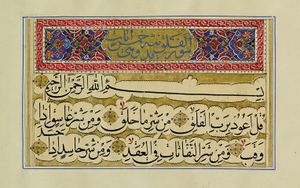 سورة الفلق
بسم الله الرحمن الرحيم
قل اعوذ برب الفلق من شر ما خلق ومن شر غاسق اذا
وقب ومن شر النفاثات في العقد ومن شر حاسد اذا حسد